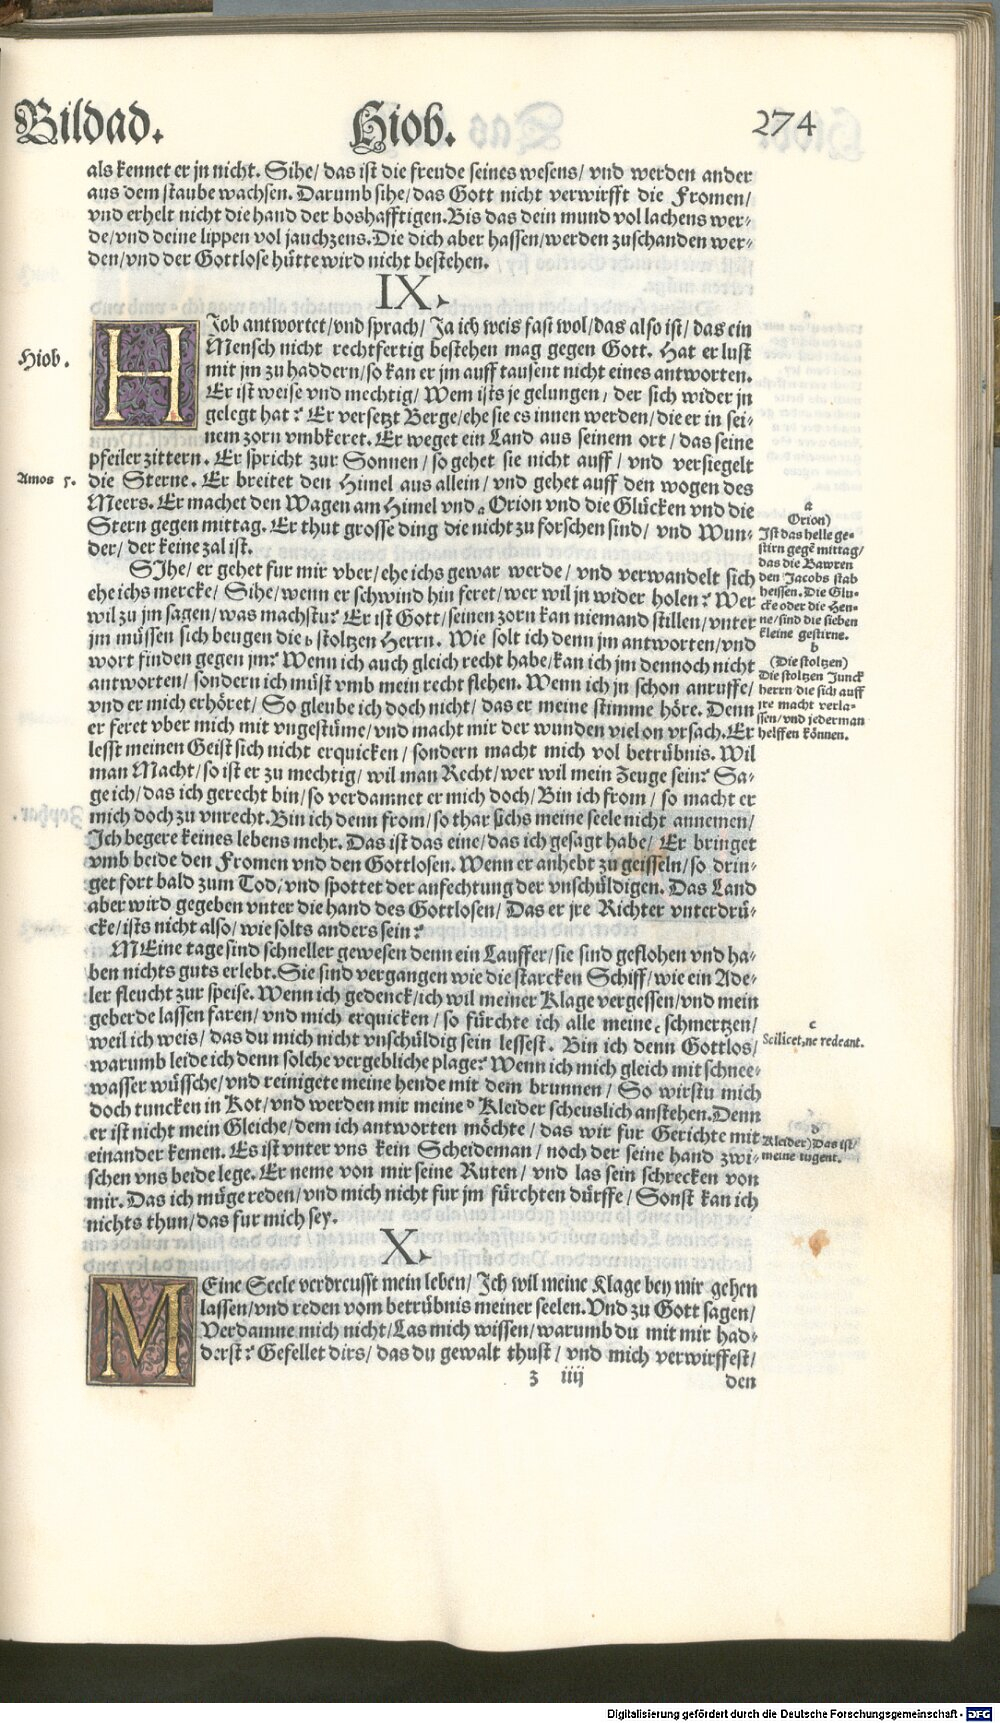 Bildad. Hiob. 274
als kennet er jn nicht. Sihe/ das ist die freude seines wesens/ vnd werden ander
aus dem staube wachsen. Darumb sihe/ das Gott nicht verwirfft die Fromen/
vnd erhelt nicht die hand der boshafftigen. Bis das dein mund vol lachens wer-
de/ vnd deine lippen vol jauchzens. Die dich aber hassen/ werden zuschanden wer-
den/ vnd der Gottlose hütte wird nicht bestehen.
IX.
Hiob.
HJob antwortet/ vnd sprach/ Ja ich weis fast wol/ das also ist/ das ein
Mensch nicht rechtfertig bestehen mag gegen Gott. Hat er lust
mit jm zu haddern/ so kan er jm auff tausent nicht eines antworten.
Er ist weise vnd mechtig/ Wem ists je gelungen/ der sich wider jn
gelegt hat? Er versetzt Berge/ ehe sie es innen werden/ die er in sei-
nem zorn vmbkeret. Er weget ein Land aus seinem ort/ das seine
pfeiler zittern. Er spricht zur Sonnen/ so gehet sie nicht auff/ vnd versiegelt
Amos 5.
die Sterne. Er breitet den Himel aus allein/ vnd gehet auff den wogen des
Meers. Er machet den Wagen am Himel vnd a Orion vnd die Glücken vnd die
Stern gegen mittag. Er thut grosse ding die nicht zu forschen sind/ vnd Wun-
der/ der keine zal ist.
SJhe/ er gehet fur mir vber/ ehe ichs gewar werde/ vnd verwandelt sich
ehe ichs mercke/ Sihe/ wenn er schwind hin feret/ wer wil jn wider holen? Wer
wil zu jm sagen/ was machstu? Er ist Gott/ seinen zorn kan niemand stillen/ vnter
jm müssen sich beugen die b stoltzen Herrn. Wie solt ich denn jm antworten/ vnd
wort finden gegen jm? Wenn ich auch gleich recht habe/ kan ich jm dennoch nicht
antworten/ sondern ich müst vmb mein recht flehen. Wenn ich jn schon anruffe/
vnd er mich erhöret/ So gleube ich doch nicht/ das er meine stimme höre. Denn
er feret vber mich mit vngestüme/ vnd macht mir der wunden viel on vrsach. Er
lesst meinen Geist sich nicht erquicken/ sondern macht mich vol betrübnis. Wil
man Macht/ so ist er zu mechtig/ wil man Recht/ wer wil mein Zeuge sein? Sa-
ge ich/ das ich gerecht bin/ so verdamnet er mich doch/ Bin ich from/ so macht er
mich doch zu vnrecht. Bin ich denn from/ so thar sichs meine seele nicht annemen/
Jch begere keines lebens mehr. Das ist das eine/ das ich gesagt habe/ Er bringet
vmb beide den Fromen vnd den Gottlosen. Wenn er anhebt zu geisseln/ so drin-
get fort bald zum Tod/ vnd spottet der anfechtung der vnschüldigen. Das Land
aber wird gegeben vnter die hand des Gottlosen/ Das er jre Richter vnterdrü-
cke/ ists nicht also/ wie solts anders sein?
MEine tage sind schneller gewesen denn ein Lauffer/ sie sind geflohen vnd ha-
ben nichts guts erlebt. Sie sind vergangen wie die starcken Schiff/ wie ein Ade-
ler fleucht zur speise. Wenn ich gedenck/ ich wil meiner Klage vergessen/ vnd mein
geberde lassen faren/ vnd mich erquicken/ so fürchte ich alle meine c schmertzen/
weil ich weis/ das du mich nicht vnschüldig sein lessest. Bin ich denn Gottlos/
warumb leide ich denn solche vergebliche plage? Wenn ich mich gleich mit schnee-
wasser wüssche/ vnd reinigete meine hende mit dem brunnen/ So wirstu mich
doch tuncken in Kot/ vnd werden mir meine d Kleider scheuslich anstehen. Denn
er ist nicht mein Gleiche/ dem ich antworten möchte/ das wir fur Gerichte mit
einander kemen. Es ist vnter vns kein Scheideman/ noch der seine hand zwi-
schen vns beide lege. Er neme von mir seine Ruten/ vnd las sein schrecken von
mir. Das ich müge reden/ vnd mich nicht fur jm fürchten dürffe/ Sonst kan ich
nichts thun/ das fur mich sey.
a
Orion)
Jst das helle ge-
stirn gegē mittag/
das die Bawren
den Jacobs stab
heissen. Die Glu-
cke oder die Hen-
ne/ sind die sieben
kleine gestirne.
b
(Die stoltzen)
Die stoltzen Junck
herrn die sich auff
jre macht verla-
ssen/ vnd jederman
helffen können.
c
Scilicet, ne redeant.
d
Kleider) Das ist/
meine tugent.
X.
MEine Seele verdreusst mein leben/ Jch wil meine Klage bey mir gehen
lassen/ vnd reden vom betrübnis meiner seelen. Vnd zu Gott sagen/
Verdamne mich nicht/ Las mich wissen/ warumb du mit mir had-
derst? Gefellet dirs/ das du gewalt thust/ vnd mich verwirffest/
z iiij den
Digitalisierung gefördert durch die Deutsche Forschungsgemeinschaft - DFG